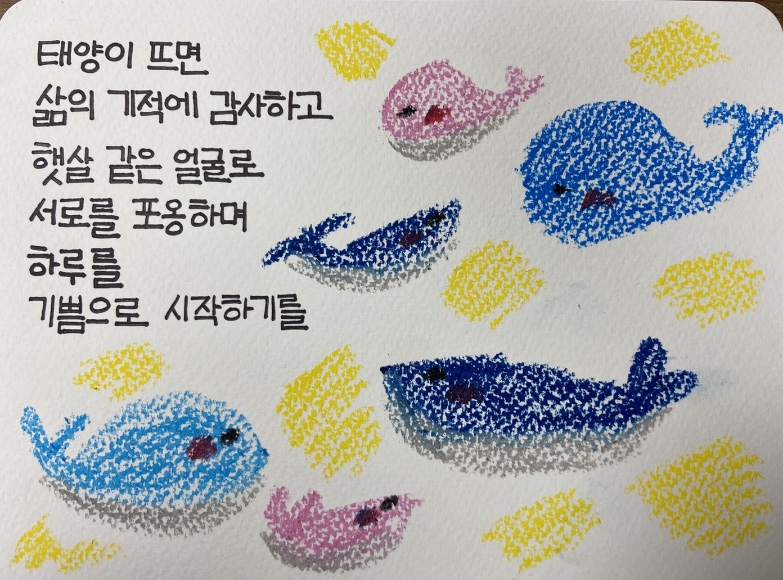 태양이 뜨면
삶의 기적에 감사하고
햇살 같은 얼굴로
서로를 포옹하며
하루를
기쁨으로 시작하기를